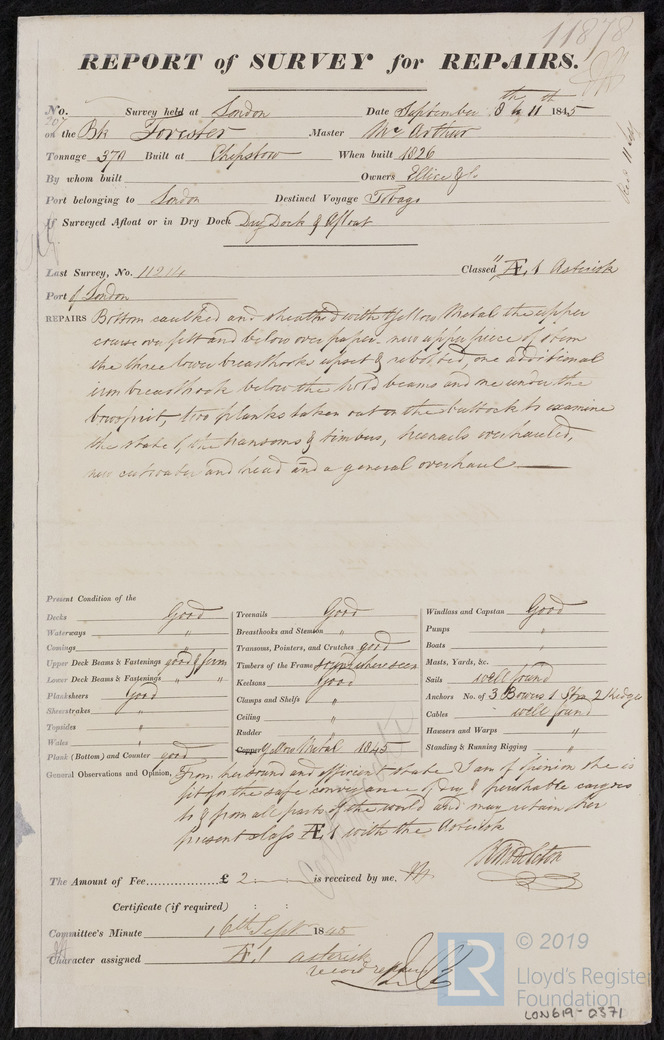 11878
REPORT of SURVEY for REPAIRS.
No. 207 Survey held at London Date September 8th & 11th 1845
on the Bk Forester Master Mc Arthur
Tonnage 370 Built at Chepstow When built 1826
By whom built Owners Ellice & Co
Port belonging to London Destined Voyage Tobago
If Surveyed Afloat or in Dry Dock Dry Dock & Afloat
Rec 11 Sep
Last Survey, No. 11214 Classed Æ.1 Asterisk
Port of London
REPAIRS Bottom caulked and sheathed with Yellow Metal the upper
course over felt and below over paper. new upper piece of stem
the three lower breasthooks upset & rebolted, one additional
iron breasthook below the hold beams and one under the
bowsprit, two planks taken out on the buttock to examine
the state of the transoms & timbers, treenails overhauled,
new cutwater and head and a general overhaul
Present Condition of the
Decks Good
Waterways "
Comings "
Upper Deck Beams & Fastenings good & firm
Lower Deck Beams & Fastenings " "
Planksheers Good
Sheerstrakes "
Topsides "
Wales "
Plank (Bottom) and Counter good
Treenails Good
Breasthooks and Stemson "
Transoms, Pointers, and Crutches good
Timbers of the Frame sound where seen
Keelsons Good
Clamps and Shelfs "
Ceiling "
Rudder "
Copper Yellow Metal 1845
Windlass and Capstan Good
Pumps "
Boats "
Masts, Yards, &c.
Sails well found
Anchors No. of 3 Bowers 1 Stm 2 Kedges
Cables well found
Hawsers and Warps "
Standing & Running Rigging "
General Observations and Opinion, From her sound and efficient state I am of opinion she is
fit for the safe conveyance of dry & perishable cargoes
to & from all parts of the world and may retain her
present class Æ.1 with the Asterisk
The Amount of Fee £ 2 is received by me,
Certificate (if required) : :
Committee's Minute 16th Sept 1845
Character assigned Æ.1 asterisk
record repairs
© 2019
LR
Lloyd's Register
Foundation
LON619-0371